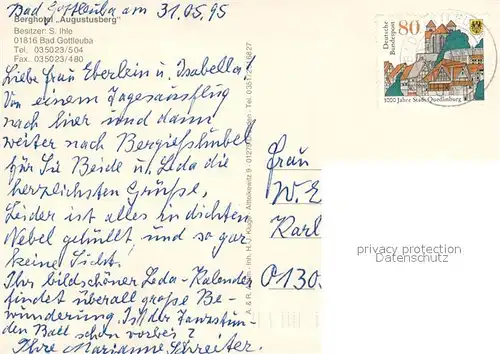 Bad Gottleuba am 31.05.95
Berghotel „Augustusberg"
Besitzer: S. Ihle
01816 Bad Gottleuba
Tel. 035023/504
Fax. 035023/480
Liebe Frau Eberlein u. Isabella!
Von einem Tagesausflug
nach hier und dann
weiter nach Bergießhübel
für Sie Beide u. Leda die
herzlichsten Grüße,
Leider ist alles in dichten
Nebel gehüllt, und so gar
keine Sicht!
Ihr bildschöner Leda-Kalender
findet überall große Be-
wunderung. Ist der Tanzstun-
den Ball schon vorbei?
Ihre Marianne Schreiter.
A. & R. Inh. H.-J. Kluge, Altlockwitz 9 - 01279 Tel.
Deutsche
Bundespost
80
1000 Jahre Stadt Quedlinburg
Frau
W. E
Karl
0130
privacy protection
Datenschutz